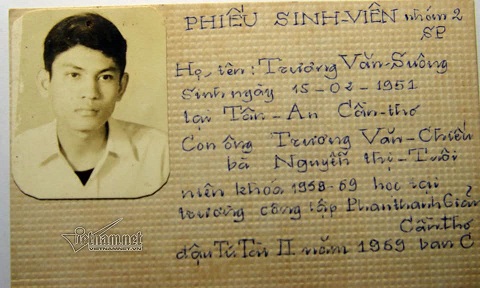 PHIẾU SINH-VIÊN nhóm 2
SP
Họ, tên: Trương Văn-Suông
Sinh ngày 15-02-1951
tại Tân-An Cần-thơ
Con ông Trương Văn-Chiếu
bà Nguyễn thị-Trôi
niên khoá 1958-59 học tại
trương công lập Phanthanh Giản
Cần thơ
đậu Tú Tài II năm 1969 ban C
Vietnam.net
VIETNAMNET.VN